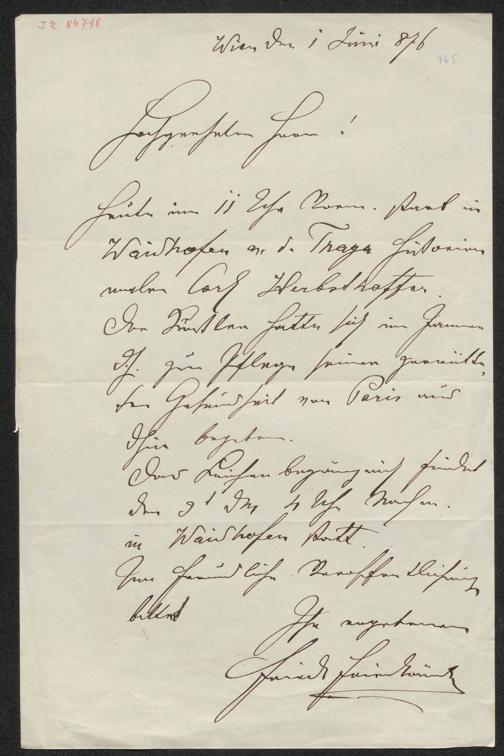 J.N. 84798
Wien den 1 Juni 876
465
Hochgeehrter Herr!
Heute um 11 Uhr Vorm. starb in
Waidhofen a. d. Thaya Historien
maler Carl Herbsthoffer.
Der Künstler hatte sich im Sommer
zur Pflege seiner
Gesundheit von Paris aus
dahin begeben.
Das Leichenbegängniß findet
den 3t 4 Uhr Nachm.
in Waidhofen statt.
Um freundliche Veröffentlichung
bittet
Ihr ergebener
Friedr Friedländer